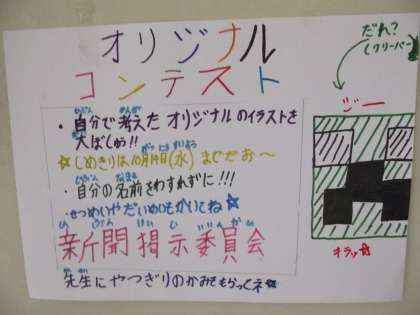 オリジナル
コンテスト
・自分で考えたオリジナルのイラストを
大ぼしゅう!!
☆しめきりは10月19日(水)までだお〜
・自分の名前をわすれずに!!!
・せつめいやだいめいもかいてね☆
新聞掲示委員会
先生にやつぎりのかみをもらってネ☆
だれ?
(クリーパー)
ジー
キラッ☆